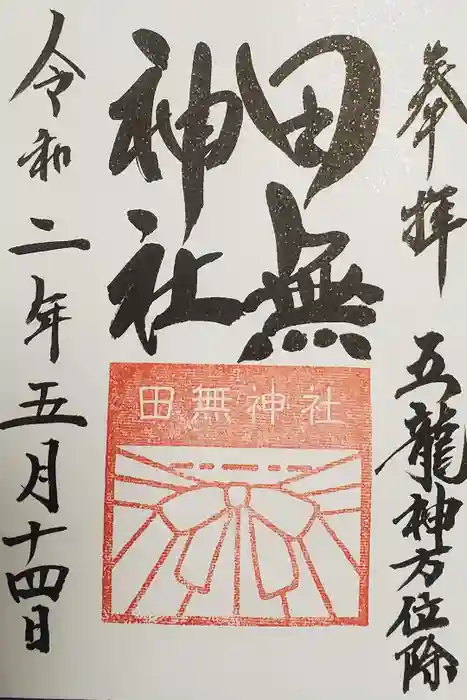 奉拝 五龍神方位除
田無
神社
田無神社
令和二年五月十四日